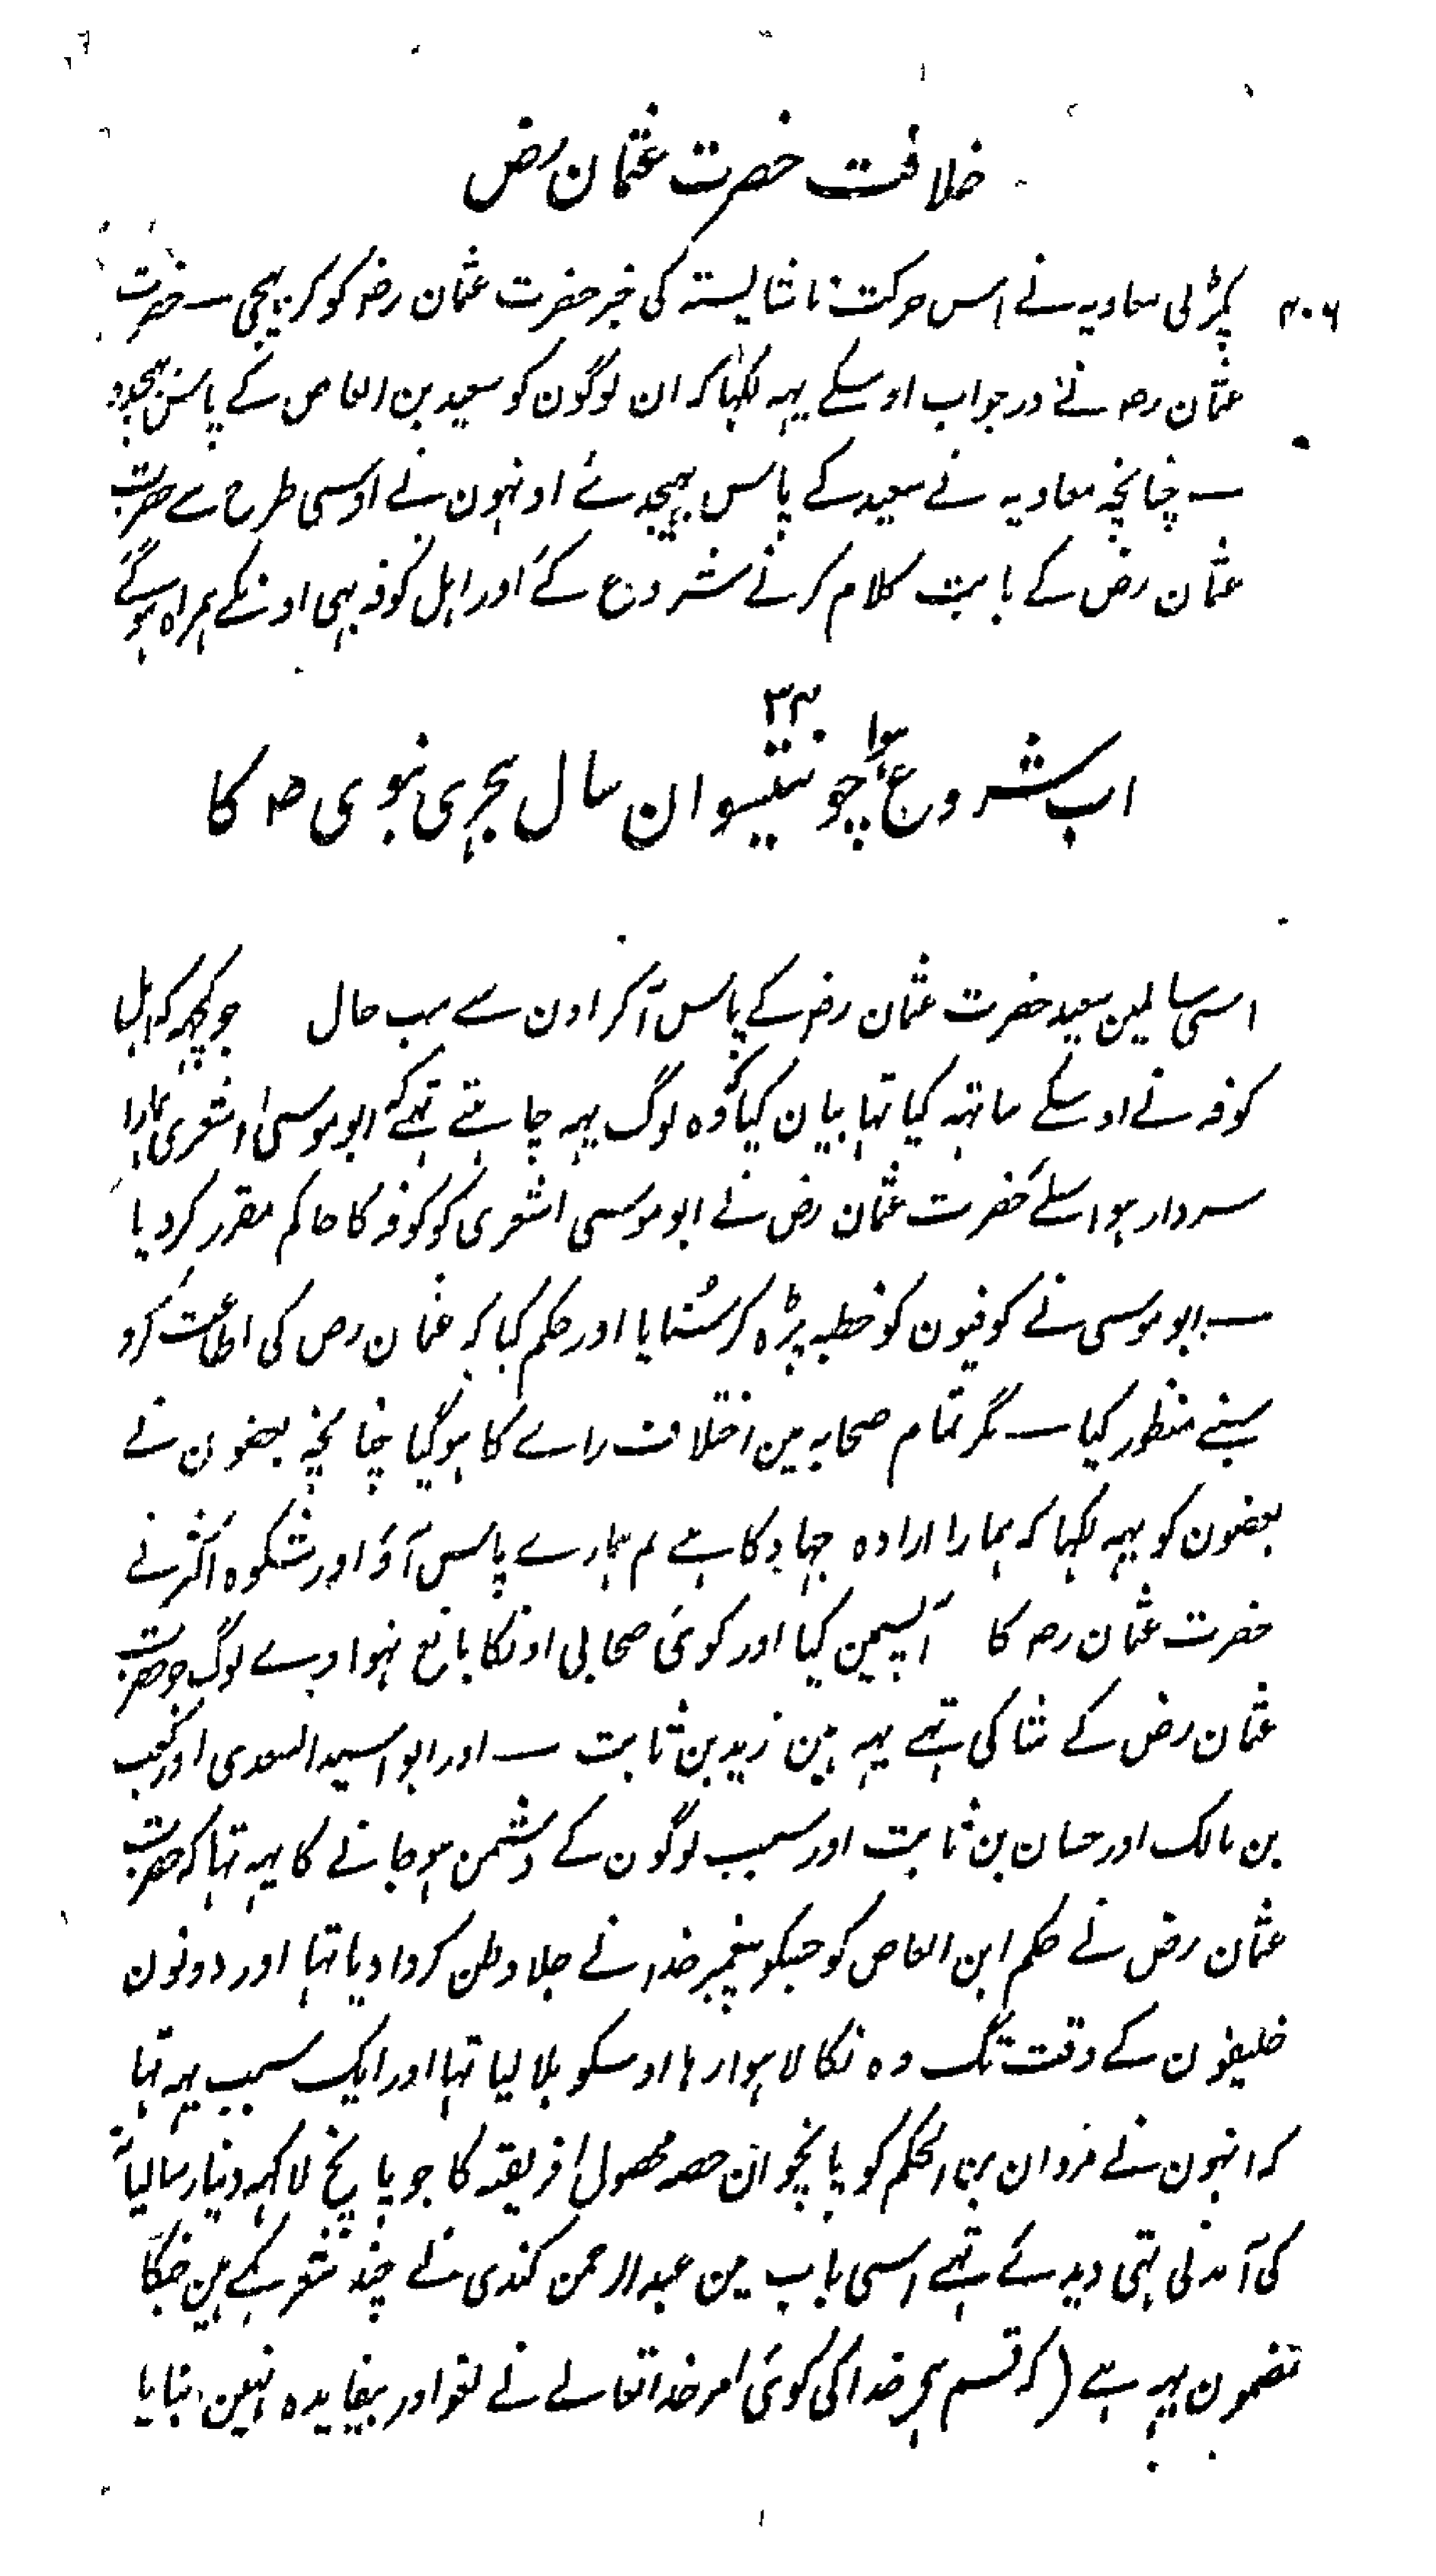 خلافت حضرت عثمان رض
۴۰۶
پکڑلی معاویہ نے اس حرکت ناشایستہ کی خبر حضرت عثمان رض کو کر بہیجی ـ حضرت
عثمان رض نے در جواب اوسکے یہہ لکہا کہ ان لوگون کو سعید بن العاص کے پاس بہیجدو
ـ چنانچہ معاویہ نے سعید کے پاس بہیجدئے اونہون نے اوسی طرح سے حضرت
عثمان رض کے بابت کلام کرنے شروع کئے اور اہل کوفہ بہی اونکے ہمراہ ہوگئے
۳۴
اب شروع ہوا چونتیسوان سال ہجری نبوی ص کا
اسی سالمین سعید حضرت عثمان رض کے پاس آکر اون سے سب حال جو کچہہ کہ اہل
کوفہ نے اوسکے ساتہہ کیا تہا بیان کیا کہ وہ لوگ یہہ چاہتے تہے کہ ابو موسیٰ اشعری ہمارا
سردار ہو اسلئے حضرت عثمان رض نے ابو موسی اشعری کو کوفہ کا حاکم مقرر کردیا
ـ ابو موسی نے کوفیون کو خطبہ پڑہ کر سُنایا اور حکم کیا کہ عثمان رض کی اطاعت کرو
سبنے منظور کیا ـ مگر تمام صحابہ مین اختلاف راے کا ہوگیا چنانچہ بعضون نے
بعضون کو یہہ لکہا کہ ہمارا ارادہ جہاد کا ہے تم ہمارے پاس آؤ اور شکوہ اکثر نے
حضرت عثمان رض کا آپسمین کیا اور کوئی صحابی اونکا مانع نہوا وے لوگ جو حضرت
عثمان رض کے شاکی تہے یہہ ہین زید بن ثابت ـ اور ابو اسید الساعدی اور کعب
بن مالک اور حسان بن ثابت اور سبب لوگون کے دشمن ہوجانے کا یہہ تہا کہ حضرت
عثمان رض نے حکم ابن العاص کو جسکو پیغمبر خدا نے جلا وطن کردا دیا تہا اور دونون
خلیفون کے وقت تک وہ نکالا ہوا رہا اوسکو بلا لیا تہا اور ایک سبب یہہ تہا
کہ انہون نے مروان بن الحکم کو پانچوان حصہ محصول افریقہ کا جو پانچ لاکہہ دینار سالیانہ
کی آمدنی تہی دیدئے تہے اسی باب مین عبدالرحمن کندی نے چند شعر کہے ہین جنکا
مضمون یہہ ہے (کہ قسم ہے خدا کی کوئی امر خدا تعالے نے لغو اور بیفایدہ نہین بنایا